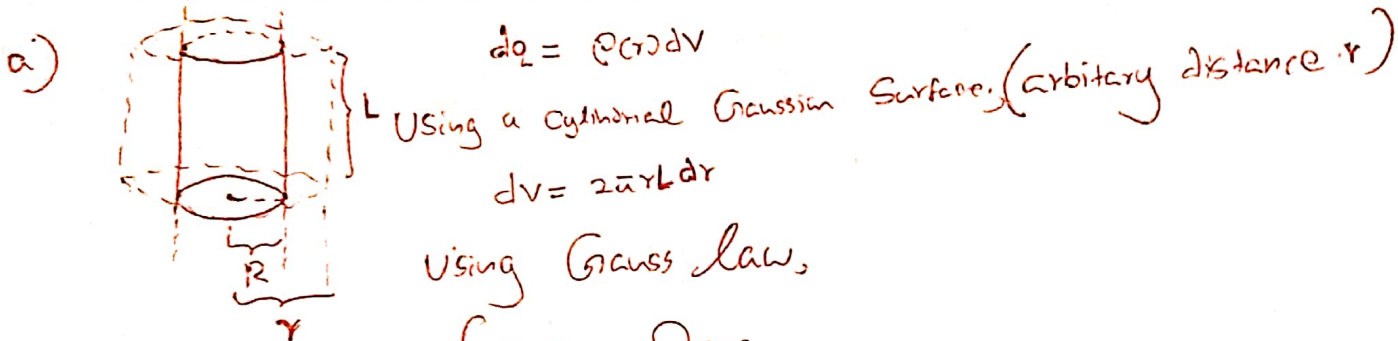 a)
dq = ρ(r)dV
L Using a Cylindrical Gaussian Surface, (arbitary distance r)
dv = 2πrLdr
R
Using Gauss law,
r